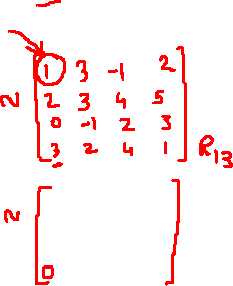 1 3 -1 2
2 3 4 5
~ 0 -1 2 3
3 2 4 1 R13
~
0